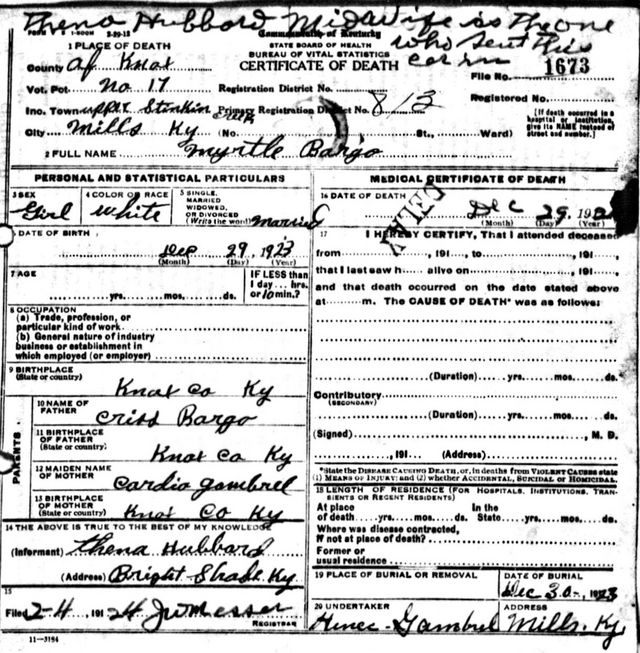 Thena Hubbard Midwife is the one
who sent this
FORM 1-500M 2-29-12
Commonwealth of Kentucky
STATE BOARD OF HEALTH
BUREAU OF VITAL STATISTICS
CERTIFICATE OF DEATH
1 PLACE OF DEATH
County of Knox
File No. 1673
Vot. Pct. No 17
Registration District No.
Registered No.
Inc. Town upper Stinkin Creek Primary Registration District No. 813
[If death occurred in a hospital or institution, give its NAME instead of street and number.]
City Mills Ky (No. St., Ward)
2 FULL NAME Myrtle Bargo
PERSONAL AND STATISTICAL PARTICULARS
3 SEX
Girl
4 COLOR OR RACE
White
5 SINGLE, MARRIED WIDOWED, OR DIVORCED (Write the word) Married
6 DATE OF BIRTH
Dec 29, 1923
(Month) (Day) (Year)
7 AGE
yrs. mos. ds.
IF LESS than
1 day hrs.
or 10 min.?
8 OCCUPATION
(a) Trade, profession, or
particular kind of work
(b) General nature of industry
business or establishment in
which employed (or employer)
9 BIRTHPLACE
(State or country)
Knox Co Ky
PARENTS
10 NAME OF
FATHER
Criss Bargo
11 BIRTHPLACE
OF FATHER
(State or country)
Knox Co Ky
12 MAIDEN NAME
OF MOTHER
Cardia Gambrel
13 BIRTHPLACE
OF MOTHER
(State or country)
Knox Co Ky
14 THE ABOVE IS TRUE TO THE BEST OF MY KNOWLEDGE
(Informant) Thena Hubbard
(Address) Bright Shade Ky.
15
Filed 2-4, 1924 Messer
REGISTRAR
11—3184
MEDICAL CERTIFICATE OF DEATH
16 DATE OF DEATH
Dec 29, 192
(Month) (Day) (Year)
17 I HEREBY CERTIFY, That I attended deceased
from , 191 , to , 191 ,
that I last saw h alive on , 191 ,
and that death occurred on the date stated above
at m. The CAUSE OF DEATH* was as follows:
(Duration) yrs. mos. ds.
Contributory
(SECONDARY)
(Duration) yrs. mos. ds.
(Signed) , M. D.
, 191 (Address)
*State the DISEASE CAUSING DEATH, or, in deaths from VIOLENT CAUSES state
(1) MEANS OF INJURY; and (2) whether ACCIDENTAL, SUICIDAL or HOMICIDAL.
18 LENGTH OF RESIDENCE (FOR HOSPITALS, INSTITUTIONS, TRANSIENTS OR RECENT RESIDENTS)
At place of death yrs. mos. ds. In the State yrs. mos. ds.
Where was disease contracted,
if not at place of death?
Former or
usual residence
19 PLACE OF BURIAL OR REMOVAL
DATE OF BURIAL
Dec 30, 1923
20 UNDERTAKER
Gambrel
ADDRESS
Mills. Ky.